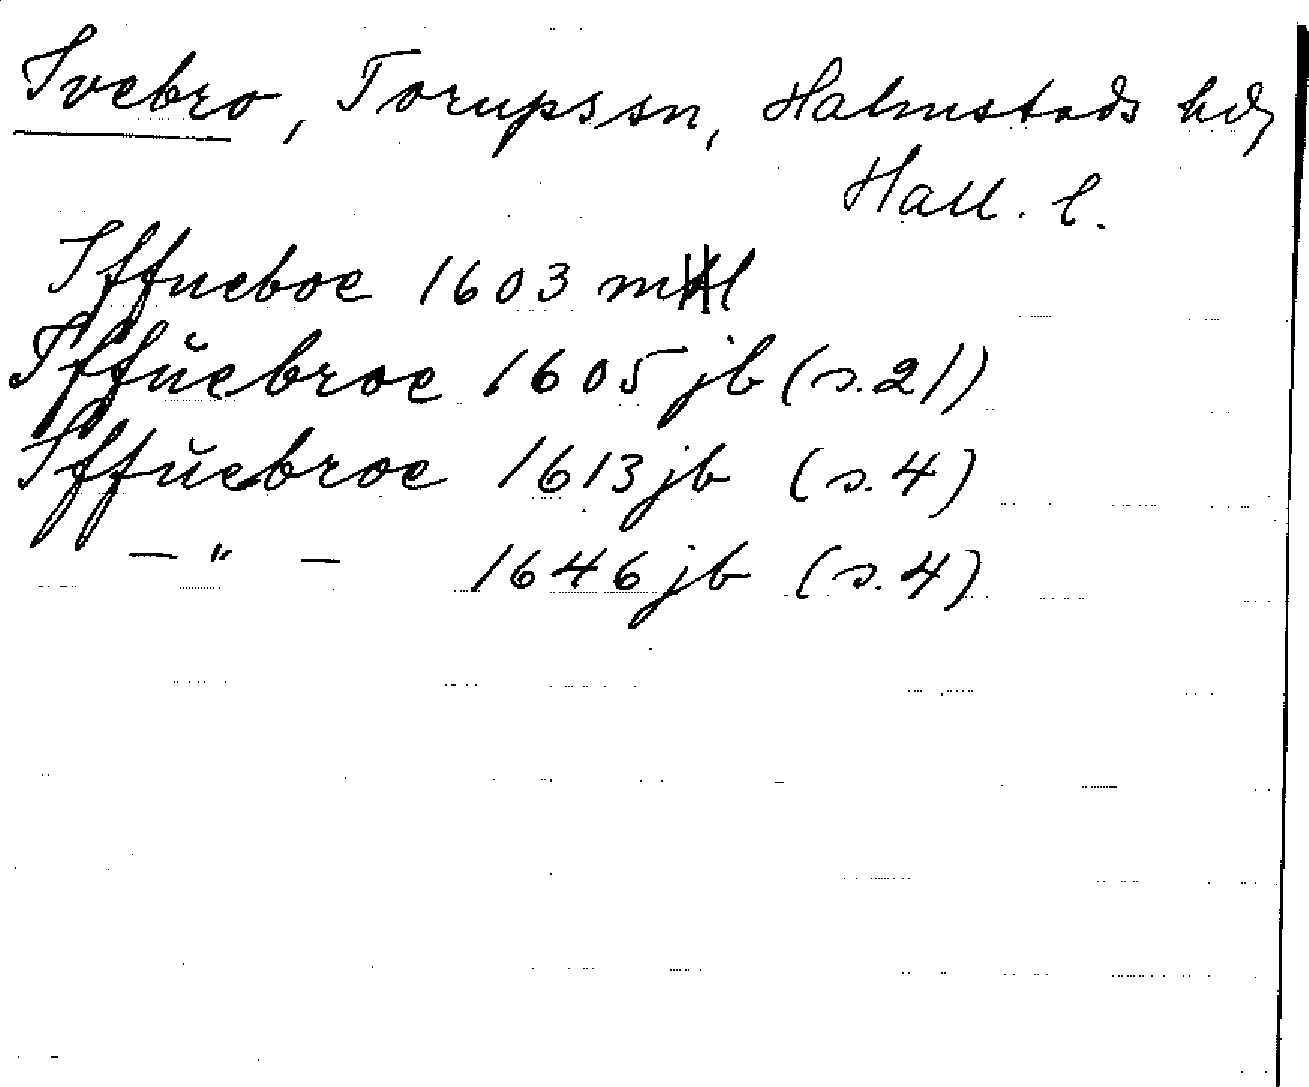 Ivebro, Torups sn, Halmstads hd,
Hall. l.
Iffueboe 1603 mtl
Iffŭebroe 1605 jb (s. 21)
Iffŭebroe 1613 jb (s. 4)
— " — 1646 jb (s. 4)